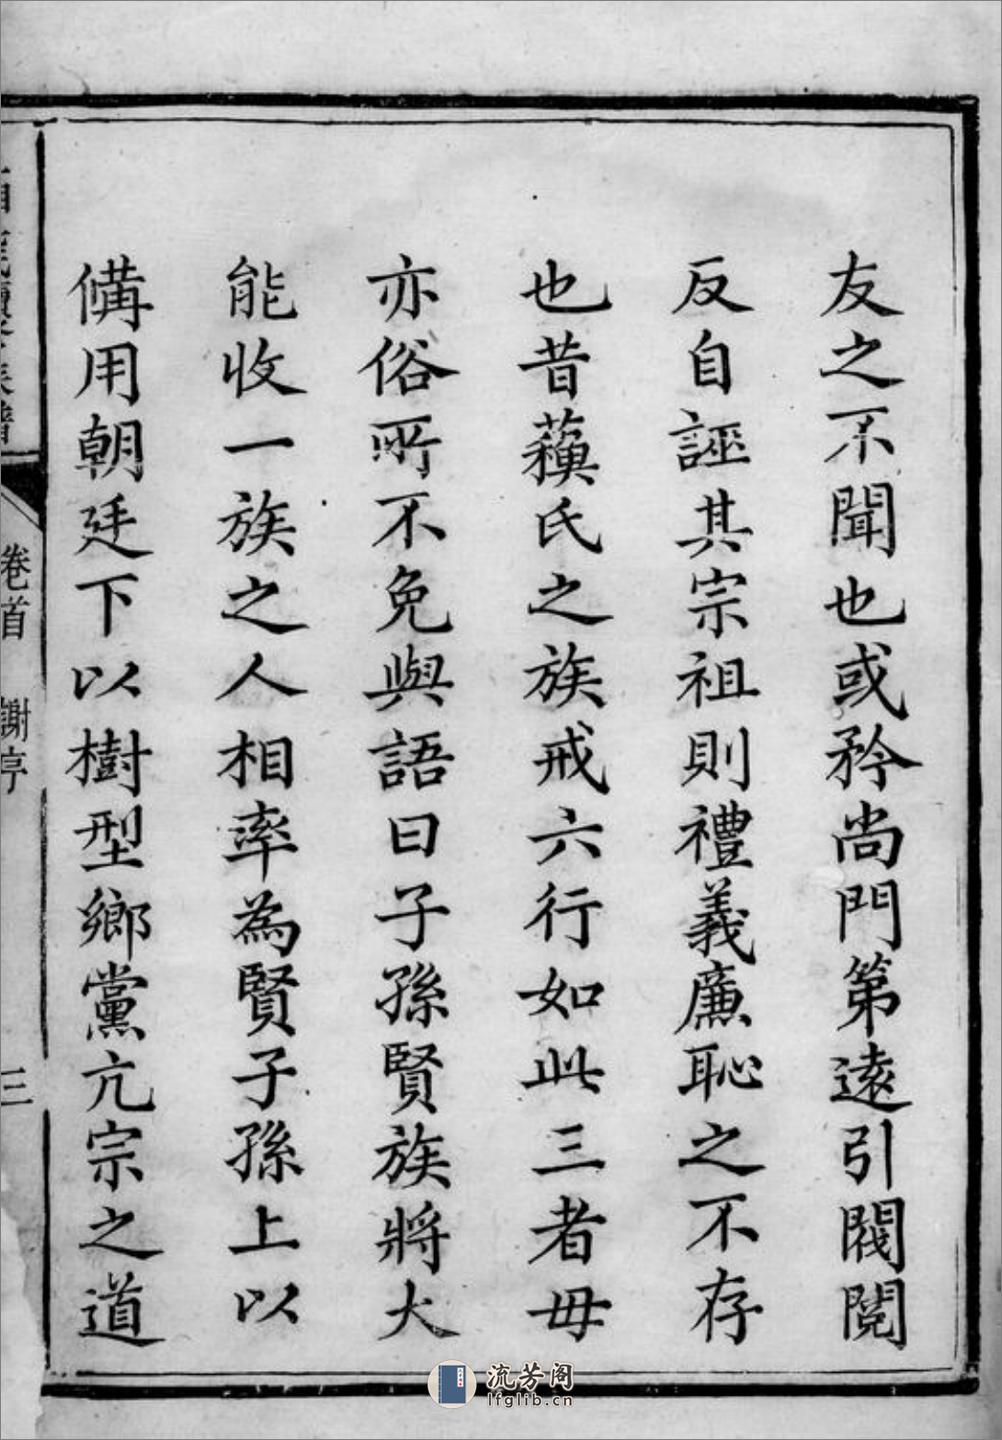 友之不聞也或矜尚門第遠引閥閱
反自誣其宗祖則禮義廉恥之不存
也昔蘓氏之族戒六行如此三者毋
亦俗所不免與語曰子孫賢族將大
能收一族之人相率為賢子孫上以
備用朝廷下以樹型鄉黨亢宗之道
卷首 謝亭 三
流芳阁
lfglib.cn